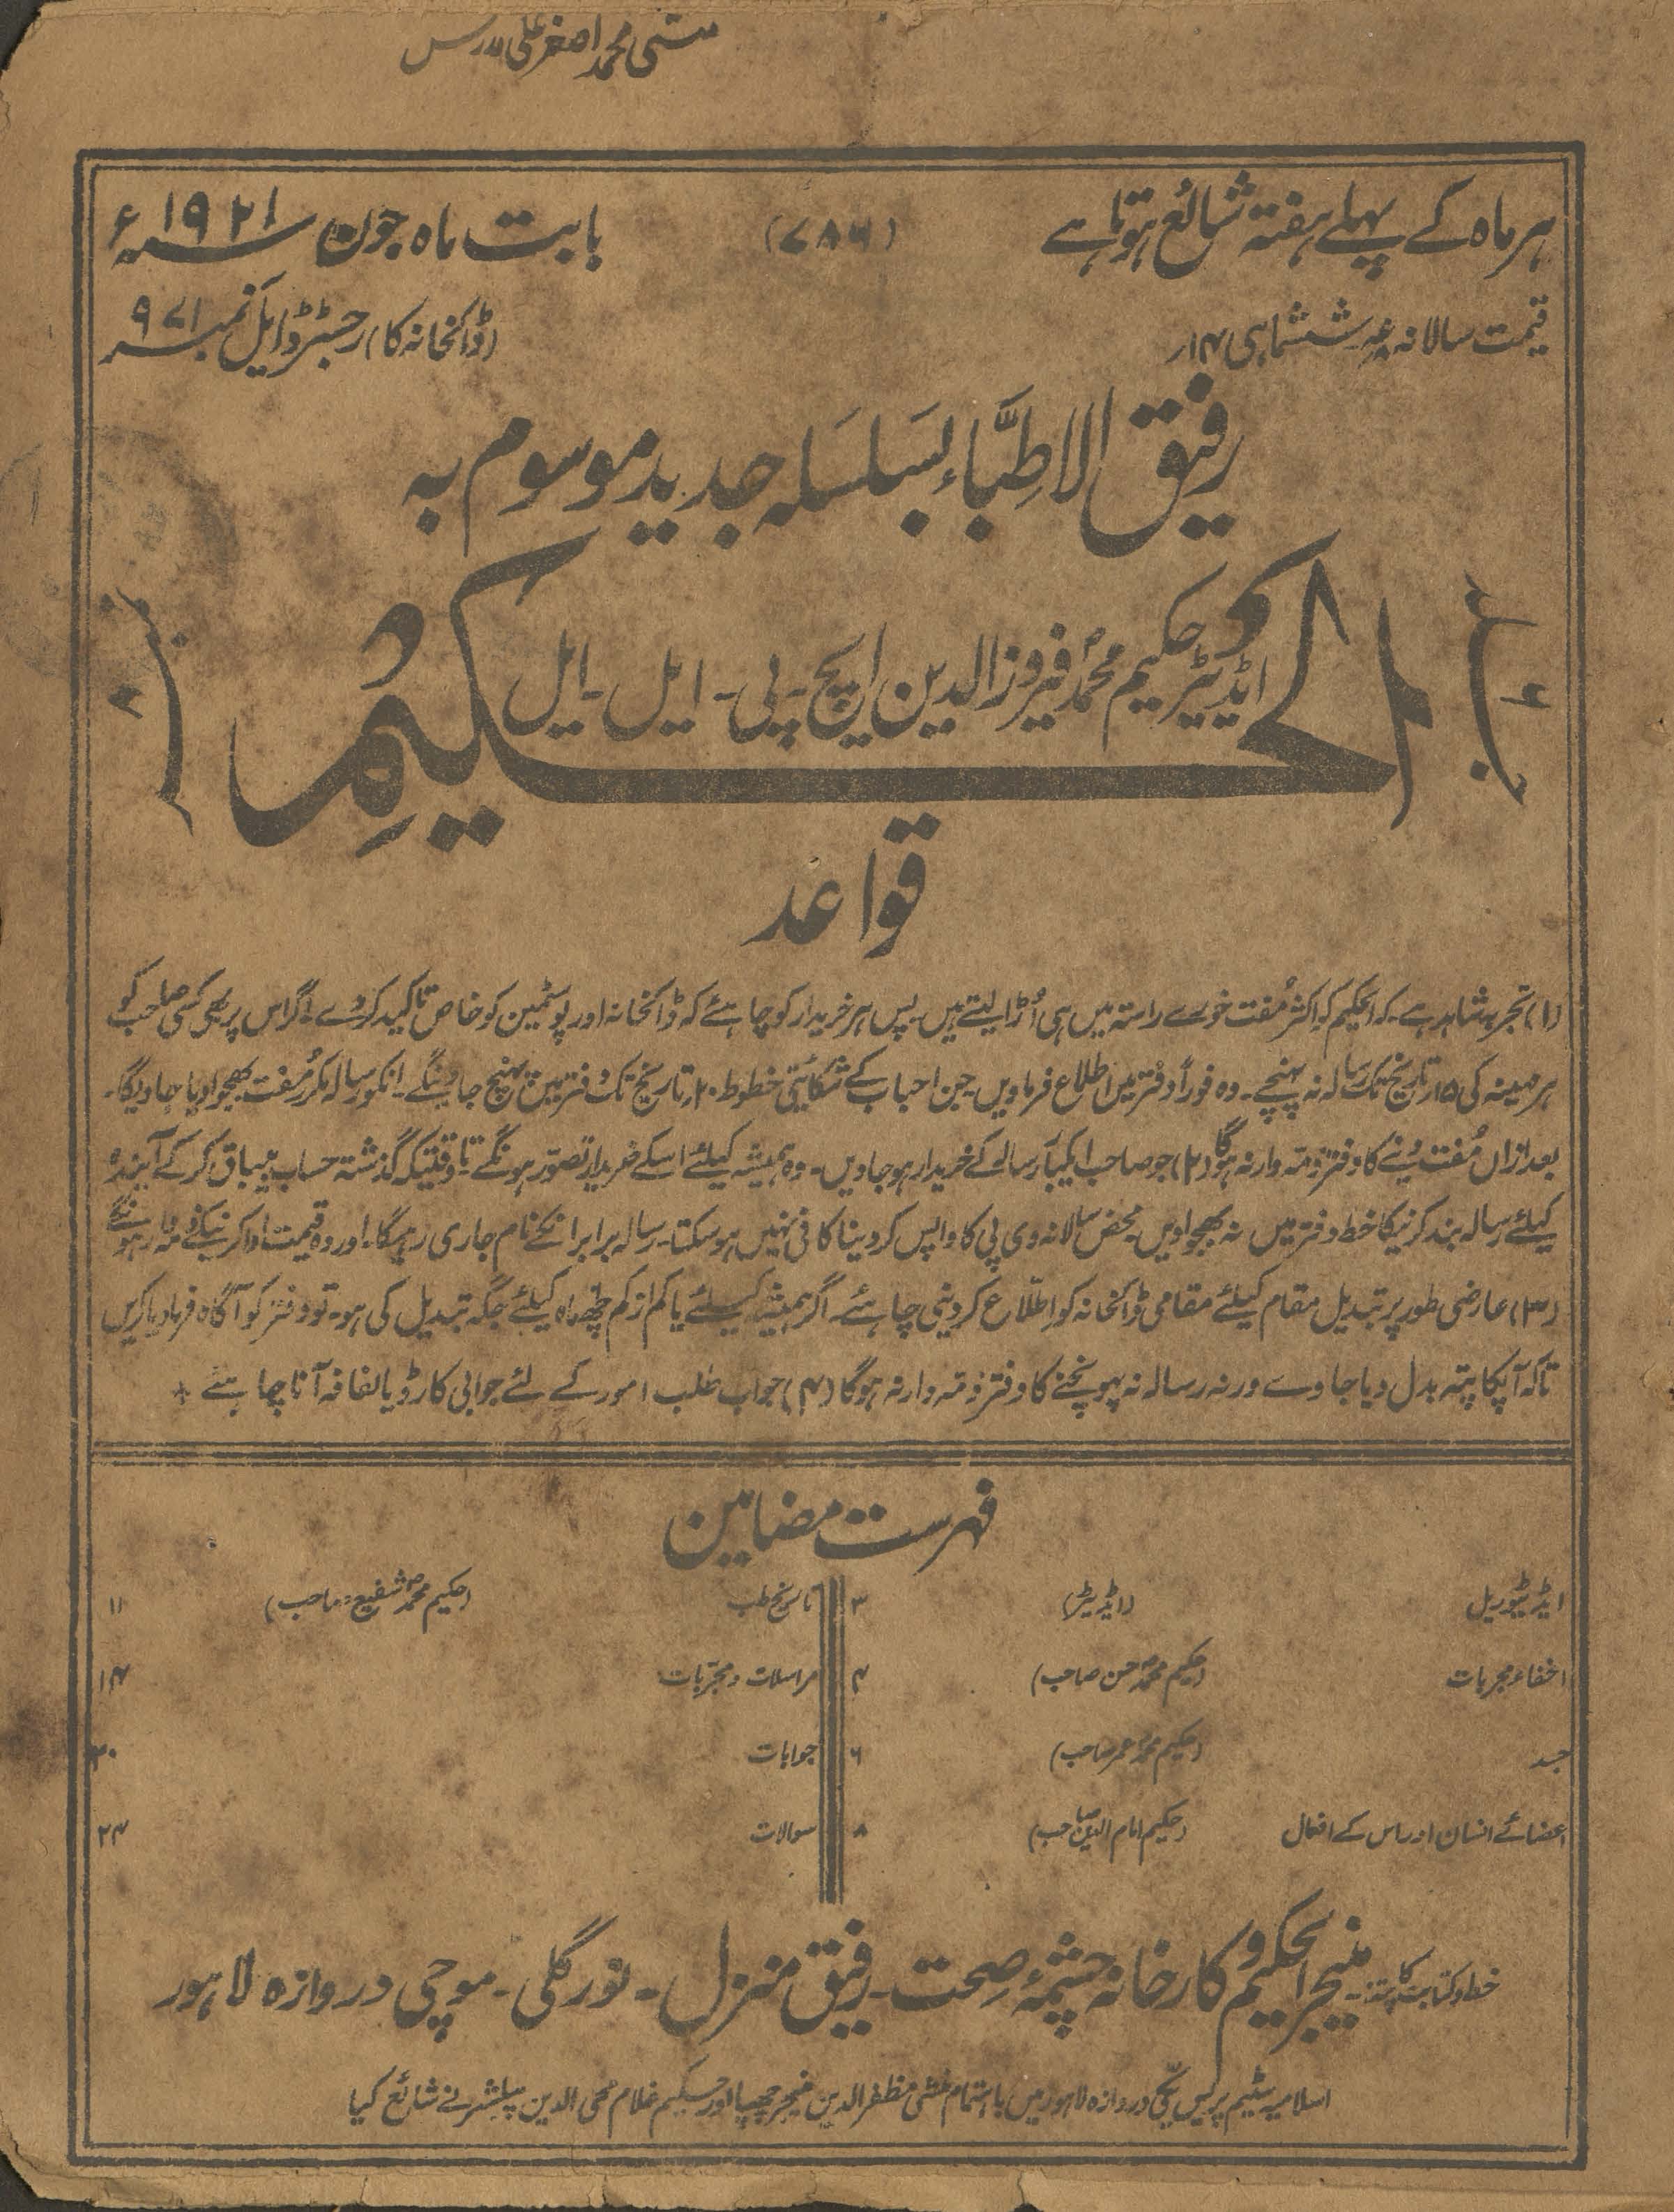 منشی محمد اصغر علی مدرس
ہر ماہ کے پہلے ہفتہ شائع ہوتا ہے
(۷۸۶)
بابت ماہ جون سنہ ۱۹۲۱ء
قیمت سالانہ ششماہی ۱۴ر
(ڈاکخانہ کا) رجسٹرڈ ایل نمبر ۹۷۱
رفیق الاطبّاء بسلسلہ جدید موسوم بہ
الحکیم
ایڈیٹر حکیم محمد فیروز الدین ایچ۔ پی۔ ایل۔ ایل
قواعد
(۱) تجربہ شاہد ہے۔ کہ الحکیم کو اکثر مُفت خورے راستہ میں ہی اُڑا لیتے ہیں۔ پس ہر خریدار کو چاہئے کہ ڈاکخانہ اور پوسٹمین کو خاص تاکید کر دے۔ اگر اس پر بھی کسی صاحب کو
ہر مہینہ کی ۱۵ر تاریخ تک رسالہ نہ پہنچے۔ وہ فوراً دفتر میں اطلاع فرماویں۔ جن احباب کے شکایتی خطوط ۲۰ر تاریخ تک دفتر میں پہنچ جاوینگے۔ انکو رسالہ مکرر مُفت بھجوا دیا جاویگا۔
بعد ازاں مُفت دینے کا دفتر ذمہ وار نہ ہوگا (۲) جو صاحب ایکبار رسالہ کے خریدار ہو جاویں۔ وہ ہمیشہ کیلئے اسکے خریدار تصوّر ہونگے۔ تا وقتیکہ گذشتہ حساب بیباق کر کے آیندہ
کیلئے رسالہ بند کرنیکا خط دفتر میں نہ بھجوا دیں۔ محض سالانہ وی پی کا واپس کر دینا کافی نہیں ہو سکتا۔ رسالہ برابر انکے نام جاری رہیگا۔ اور وہ قیمت ادا کرنیکے ذمہ وار ہونگے
(۳) عارضی طور پر تبدیل مقام کیلئے مقامی ڈاکخانہ کو اطلّاع کر دینی چاہئے۔ اگر ہمیشہ کیلئے یا کم از کم چھ ماہ کیلئے جگہ تبدیل کی ہو۔ تو دفتر کو آگاہ فرما دیا کریں
تاکہ آپکا پتہ بدل دیا جاوے ورنہ رسالہ نہ پہونچنے کا دفتر ذمہ وار نہ ہوگا (۴) جواب طلب امور کے لئے جوابی کارڈ یا لفافہ آنا چاہئے
فہرست مضامین
ایڈیٹوریل (ایڈیٹر) ۳
تاریخ طب (حکیم محمد شفیع صاحب) ۱۱
اخفاء مجربات (حکیم محمد حسن صاحب) ۴
مراسلات و مجرّبات ۱۴
جسد (حکیم محمد عمر صاحب) ۶
جوابات ۲۰
اعضائے انسان اور اس کے افعال (حکیم امام الدین صاحب) ۸
سوالات ۲۴
خط و کتابت کا پتہ:۔ منیجر الحکیم و کارخانہ چشمۂ صحت۔ رفیق منزل۔ نور گلی۔ موچی دروازہ لاہور
اسلامیہ سٹیم پریس یکی دروازہ لاہور میں باہتمام منشی مظفر الدین منیجر چھپا اور حکیم غلام محی الدین پبلشر نے شائع کیا